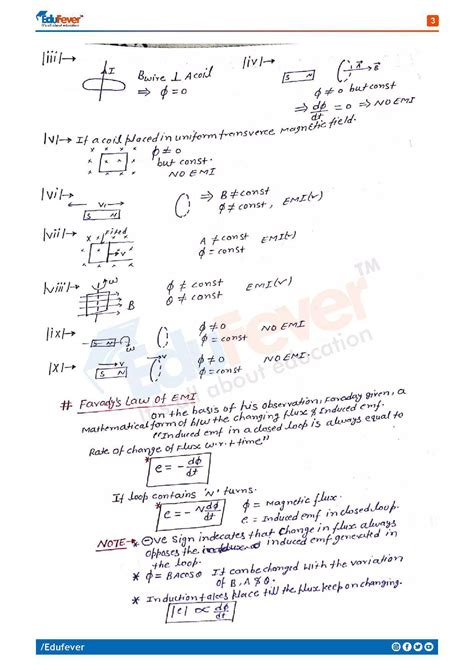 EduFever
It's all about education
3
|iii|→ I Bwire ⊥ Acoil
⇒ ϕ = 0
|iv|→ S N A B
ϕ ≠ 0 but const
⇒ dϕ/dt = 0 ⇒ NO EMI
|v|→ If a coil placed in uniform transverse magnetic field.
ϕ ≠ 0
but const.
NO EMI
|vi|→ v S N ⇒ B ≠ const
ϕ ≠ const, EMI(✓)
|vii|→ fixed v A ≠ const
ϕ = const EMI(✓)
|viii|→ ω B ϕ ≠ const
θ ≠ const EMI(✓)
|ix|→ S N ω ϕ ≠ 0 NO EMI
ϕ = const.
|x|→ S N v ϕ ≠ 0
ϕ = const NO EMI.
EduFever™
It's all about education
# Farady's Law of EMI
On the basis of his observation, Faraday given, a
Mathematical form of b/w the changing flux & Induced emf.
"Induced emf in a closed loop is always equal to
Rate of change of Flux w.r.t time"
* e = - dϕ/dt
If loop contains 'N' turns.
* e = - N dϕ/dt
ϕ = Magnetic flux.
e = Induced emf in closed loop.
NOTE → * ⊖ve Sign indecates that change in flux always
opposes the induced emf generated in
the loop.
* ϕ = BAcosθ It can be changed with the variation
of B, A & θ.
* Induction takes place till the flux keep on changing.
|e| ∝ dϕ/dt
/Edufever